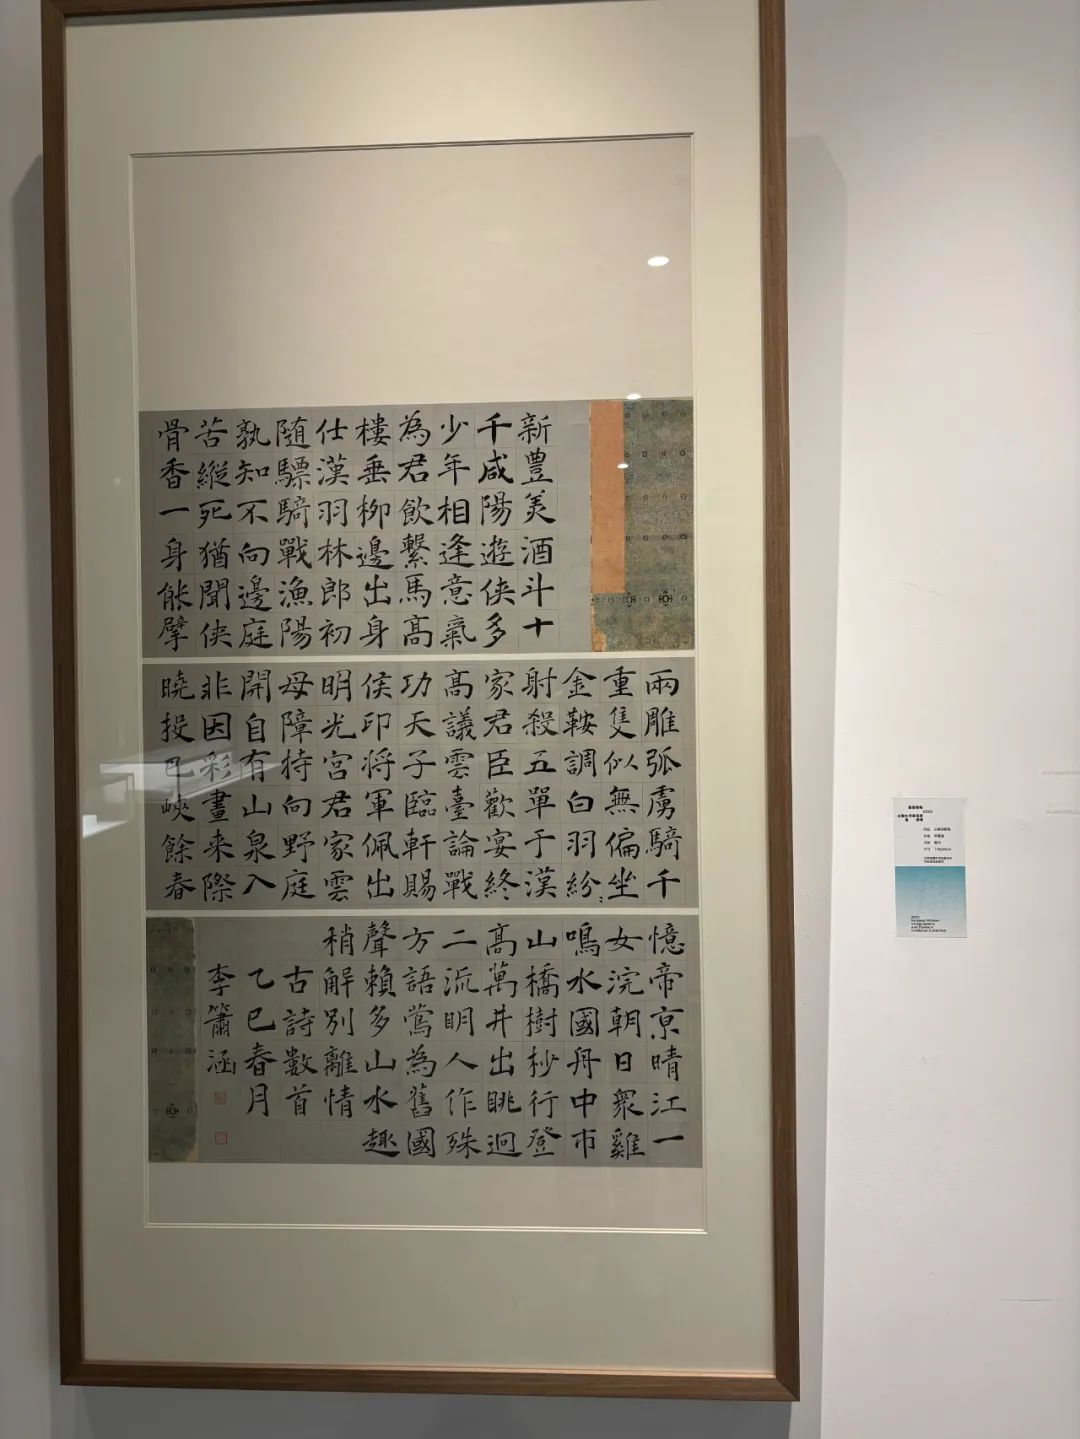 新豊美酒斗十
千咸陽遊侠多
少年相逢意氣
為君飲繫馬髙
樓垂柳邊出身
仕漢羽林郎初
随驃騎戰漁陽
孰知不向邊庭
苦縱死猶聞侠
骨香一身能擘
兩雕弧虜騎千
重隻似無偏坐
金鞍調白羽紛〻
射殺五單于漢
家君臣歡宴終
髙議雲臺論戰
功天子臨軒賜
侯印将軍佩出
明光宮君家雲
母障持向野庭
開自有山泉入
非因彩畫来際
曉投巴峽餘春
憶帝亰晴江一
女浣朝日衆雞
鳴水國舟中市
山橋樹杪行登
髙萬井出眺迥
二流明人作殊
方語鶯為舊國
聲賴多山水趣
稍解別離情
古詩數首
乙巳春月
李簫涵
2025